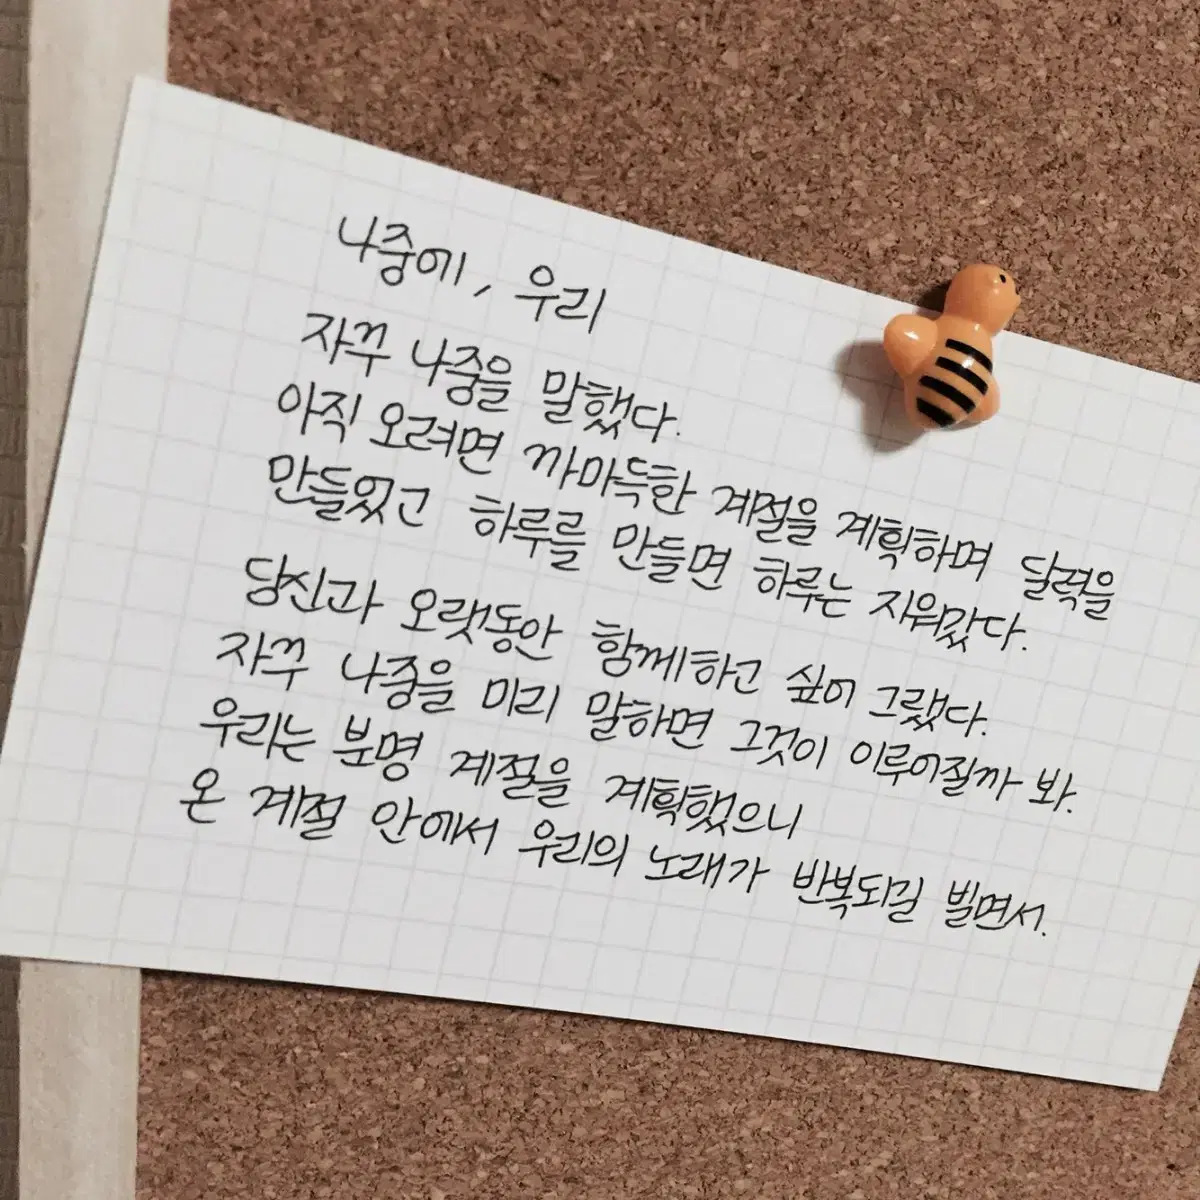 나중에, 우리
자꾸 나중을 말했다.
아직 오려면 까마득한 계절을 계획하며 달력을
만들었고 하루를 만들면 하루는 지워갔다.
당신과 오랫동안 함께하고 싶어 그랬다.
자꾸 나중을 미리 말하면 그것이 이루어질까 봐.
우리는 분명 계절을 계획했으니
온 계절 안에서 우리의 노래가 반복되길 빌면서.